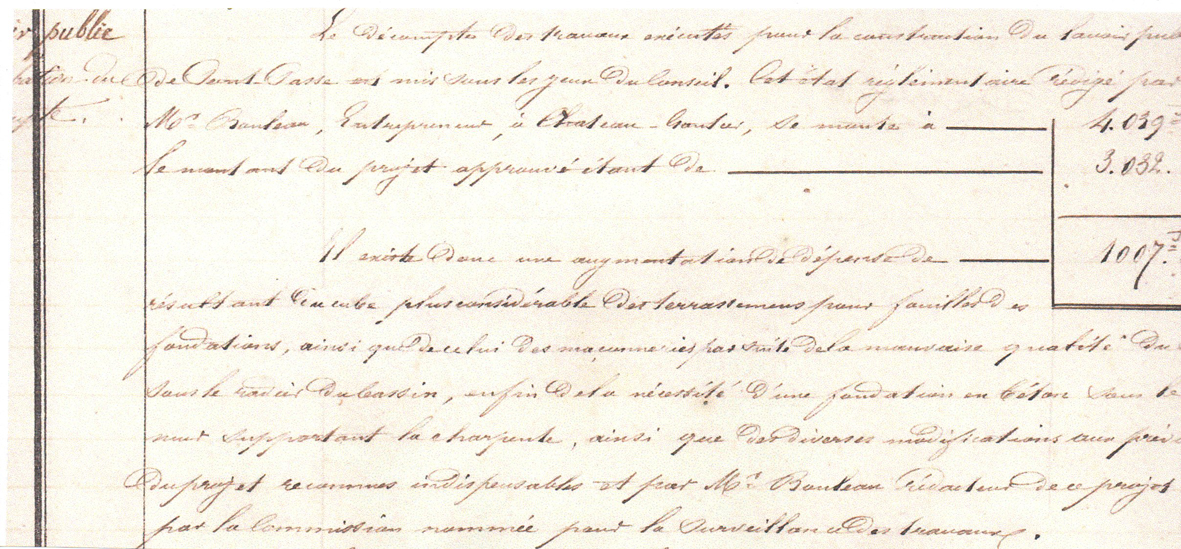 public
Le décompte des travaux exécutés pour la construction du lavoir pub
de Pont-Passe est mis sous les yeux du Conseil. Cet état réglementaire rédigé par
Mr Bouleau, Entrepreneur, à Chateau-Gontier, se monte à 4.039
le montant du projet approuvé étant de 3.032.
Il existe donc une augmentation de dépense de 1007.
résultant du cube plus considérable des terrassemens pour fouilles des
fondations, ainsi que de celui des maçonneries par suite de la mauvaise qualité du
sous le radier du bassin, enfin de la nécessité d'une fondation en béton sous le
mur supportant la charpente, ainsi que des diverses modifications aux prév
du projet reconnues indispensables et par Mr Bouleau rédacteur de ce projet
par la Commission nommée pour la surveillance des travaux.